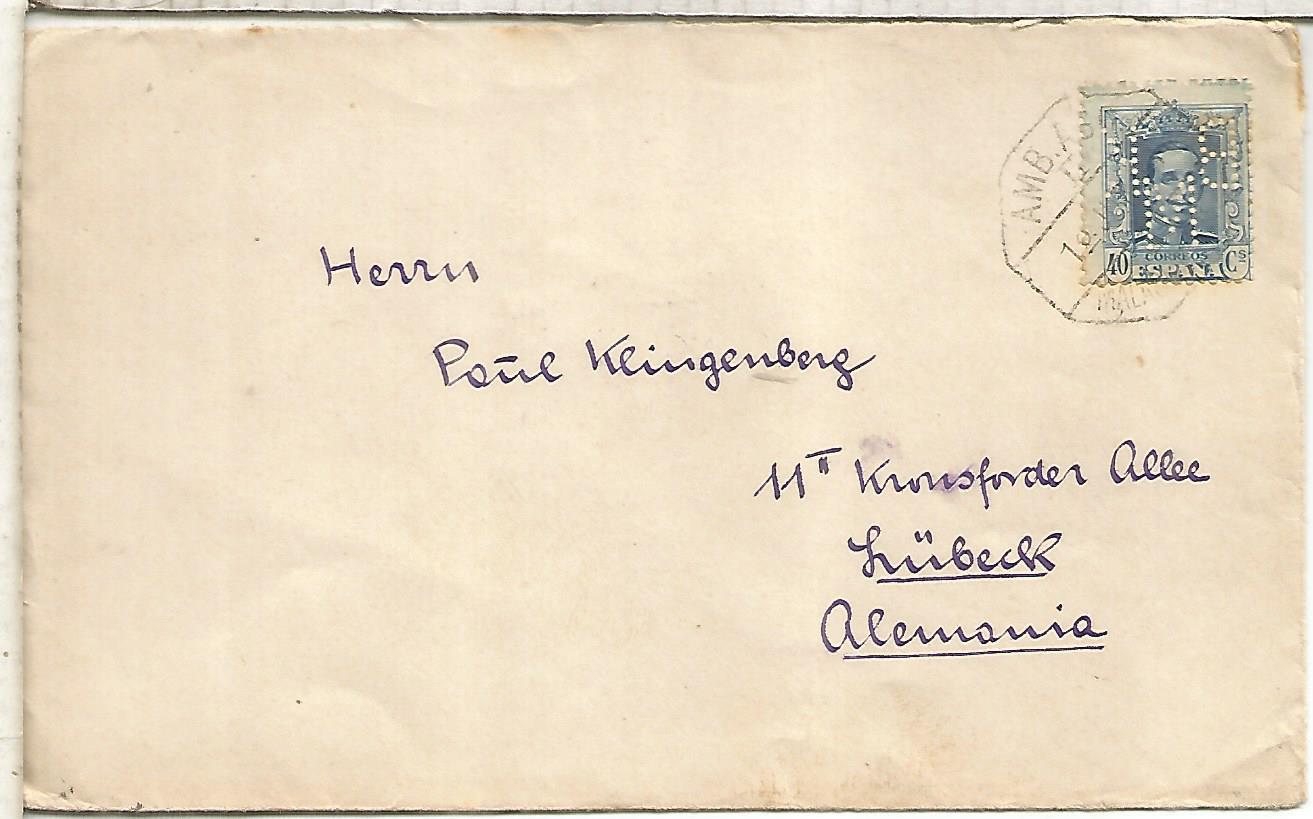 AMB.
CORREOS
40 ESPAÑA Cs
Herrn
Paul Klingenberg
11 II Kronsforder Allee
Lübeck
Alemania